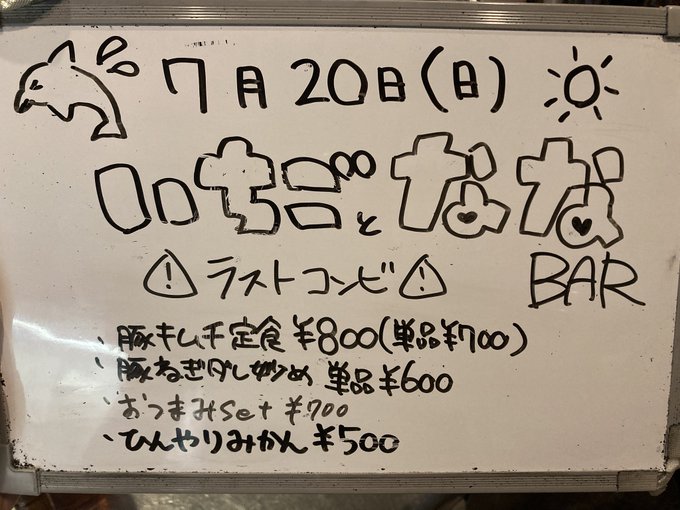 7月20日(日)
いちごとなな
⚠ラストコンビ⚠ BAR
、豚キムチ定食 ¥800(単品¥700)
、豚ねぎダレ炒め 単品¥600
、おつまみset ¥700
、ひんやりみかん ¥500